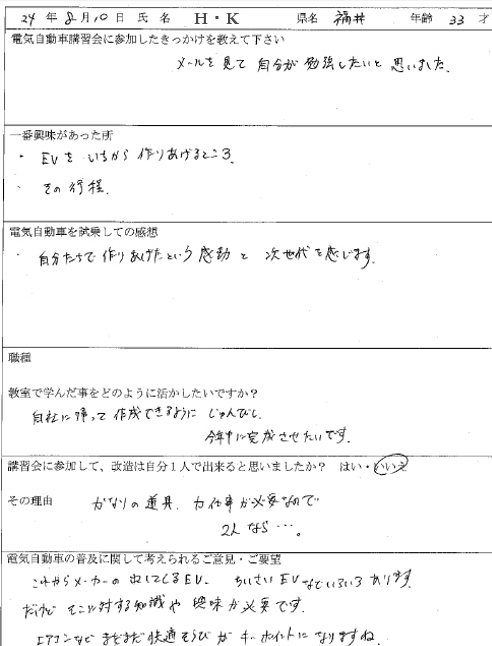 24年 8月10日 氏名 H・K 県名 福井 年齢 33 才
電気自動車講習会に参加したきっかけを教えて下さい
メールを見て 自分が勉強したいと思いました.
一番興味があった所
・ EVを いちから 作りあげるところ.
・ その行程.
電気自動車を試乗しての感想
・ 自分たちで作りあげたという感動と 次世代を感じます.
職種
教室で学んだ事をどのように活かしたいですか?
自社に帰って作成できるように じゅんびし.
今年中に完成させたいです.
講習会に参加して、改造は自分1人で出来ると思いましたか? はい・いいえ
その理由 かなりの道具. 力仕事が必要なので
2人なら…。
電気自動車の普及に関して考えられるご意見・ご要望
これからメーカーの出してくるEV. ちいさいEVなどいろいろあります.
だけど そこに対する知識や興味が必要です.
エアコンなど まだまだ快適そうびが キーポイントになりますね.